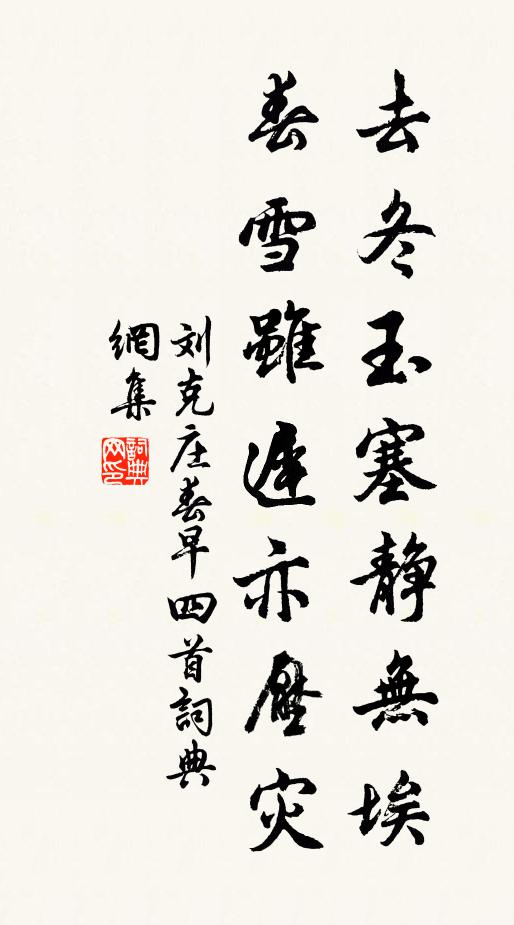 去冬玉塞静無埃
春雪雖遲亦壓灾
刘克庄春早四首詞典
網集
詞典網印